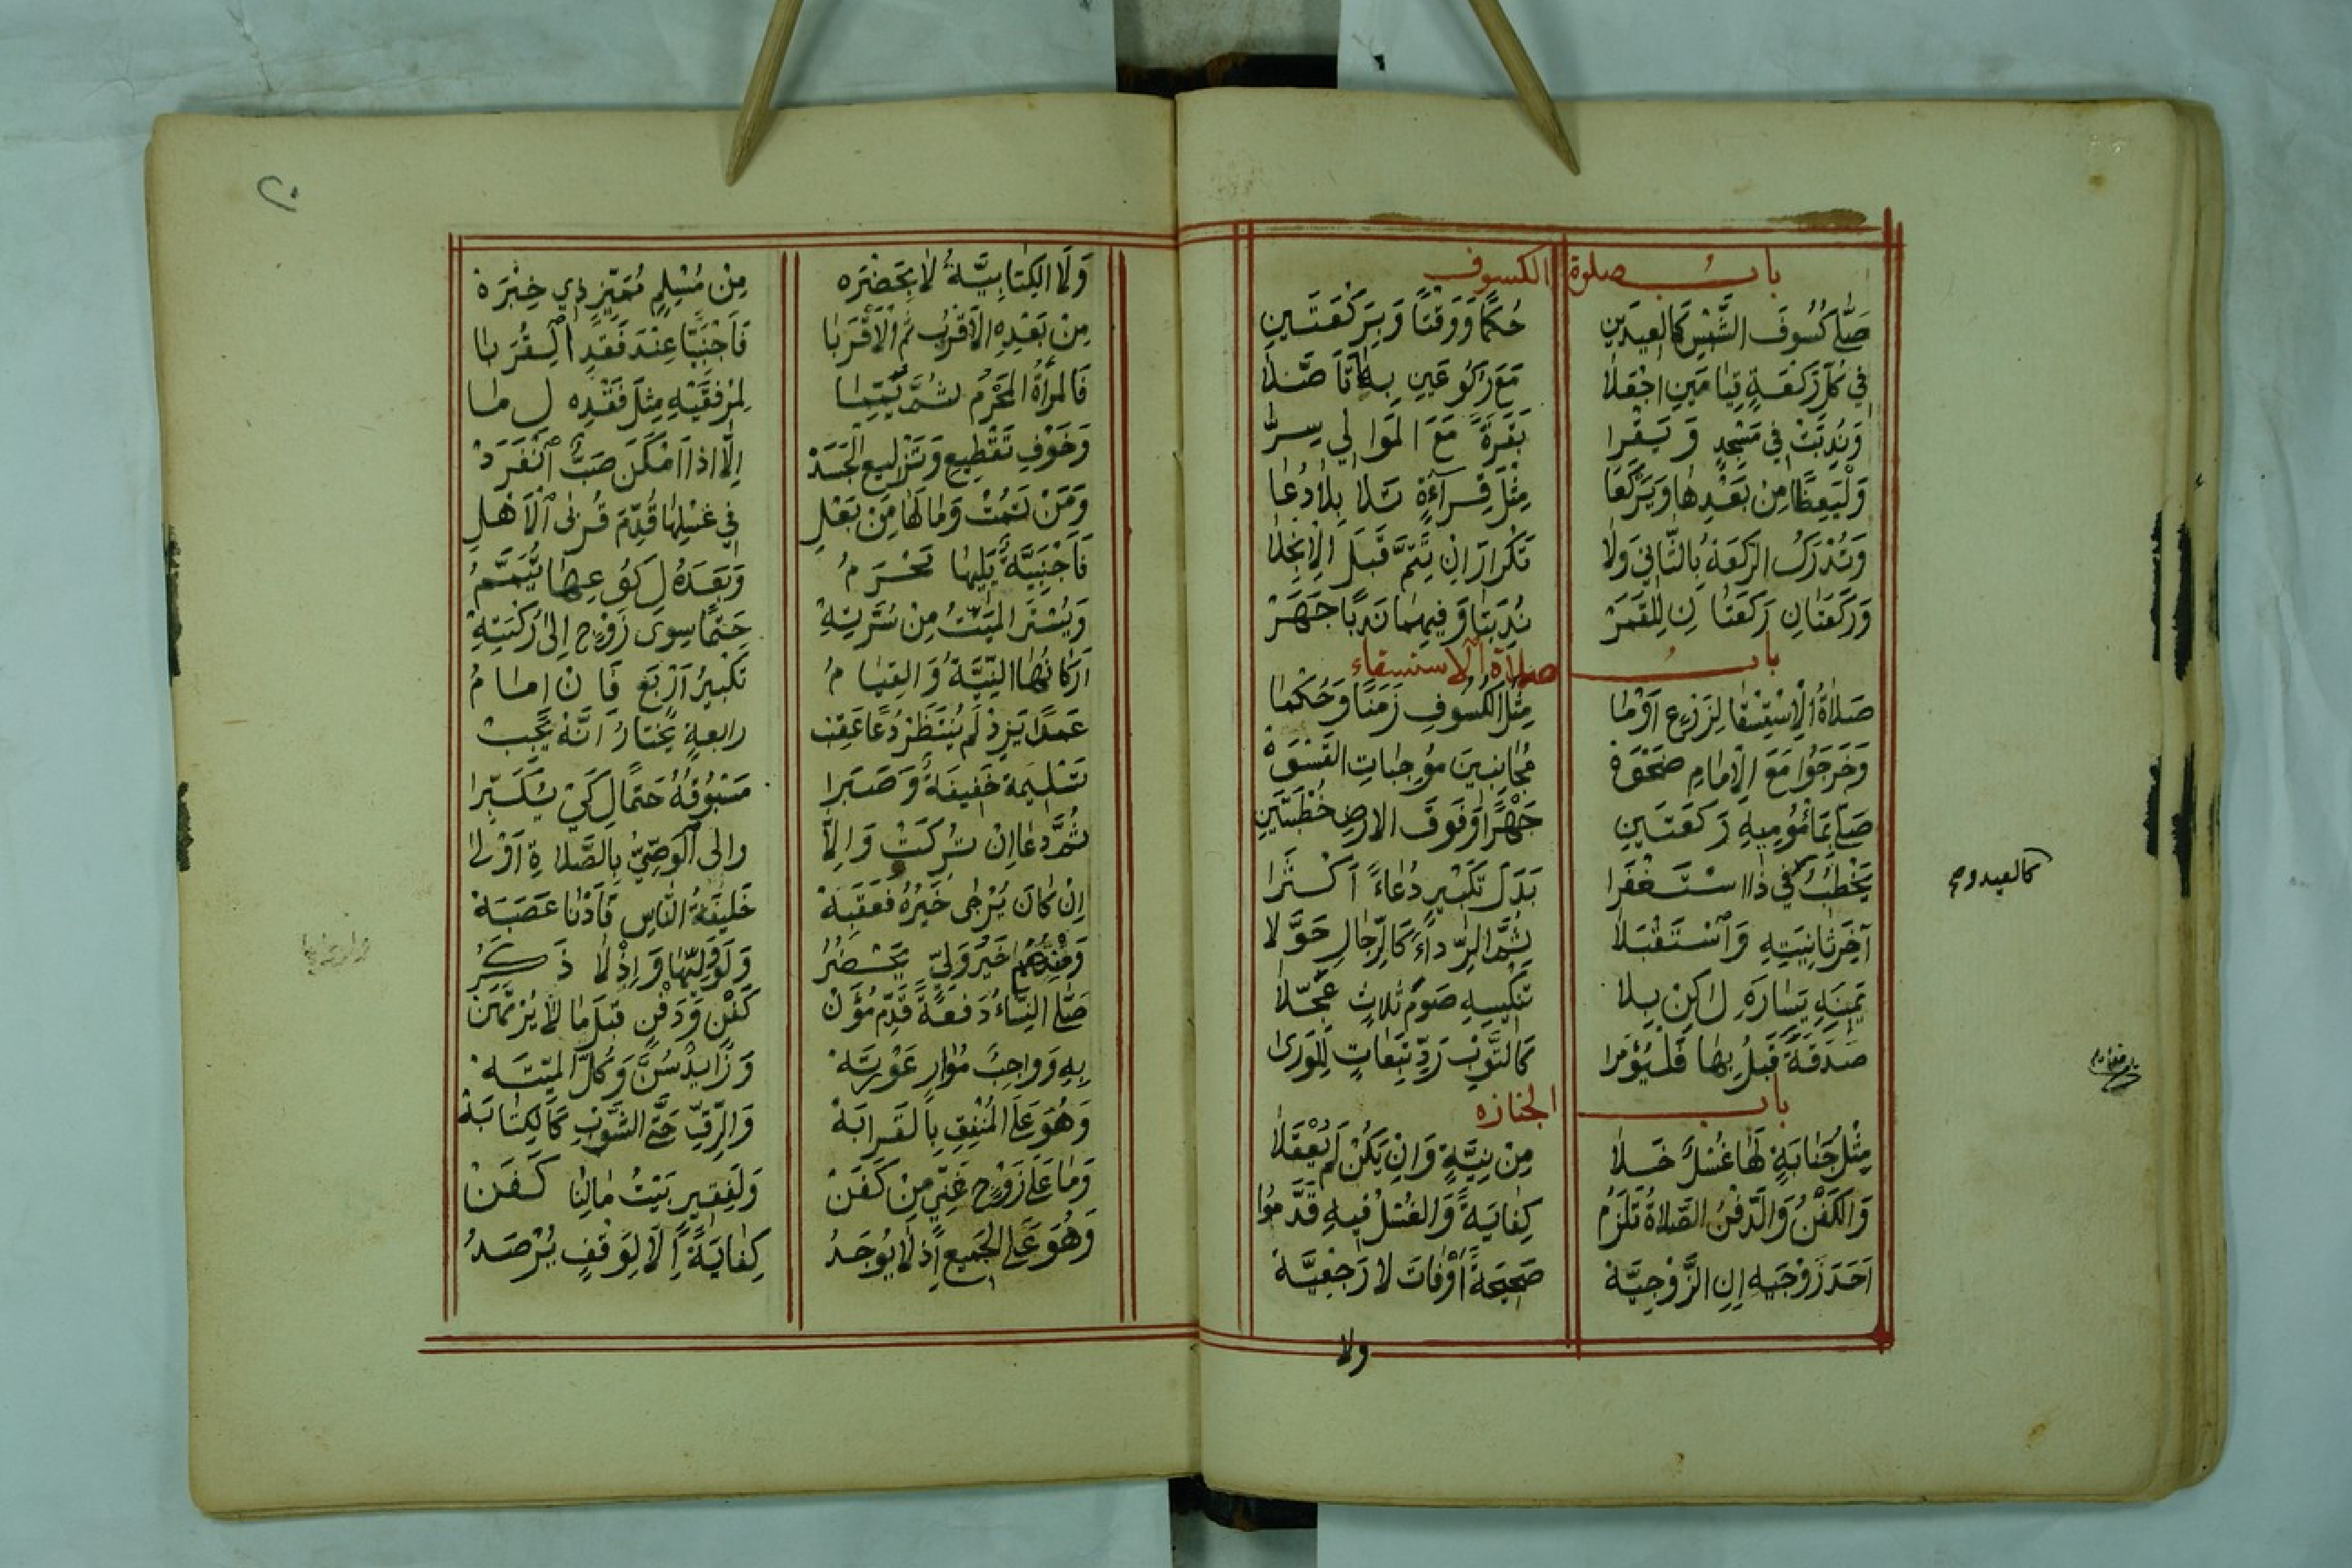 باب صلوة الكسوف
صَلِّ كُسُوفَ الشَّمْسِ كَالعِيدَيْنِ حُكْمًا وَوَقْتًا وَبِرَكْعَتَيْنِ
فِي كُلِّ رَكْعَةٍ قِيَامَيْنِ اجْعَلَا مَعَ رَاكُوعَيْنِ بِهَا
وَنُدِبَتْ فِي مَسْجِدٍ وَيَقْرَا بَقَرَةً مَعَ المَوَالِي سِرَّا
وَلْيَعِظًا مِنْ بَعْدِهَا وَيَرْكَعَا مِثْلَ قِرَآءَةٍ تَلَا بِلَا دُعَا
وَتُدْرَكُ الرَّكْعَةُ بِالثَّانِي وَلَا تَكْرَارَ اِنْ تَتَمَّ قَبْلَ الِانْجِلَا
وَرَكْعَتَانِ رَكْعَتَا نِ لِلْقَمَرْ نُدِبَتَا وَفِيهِمَا نَدْبًا جَهَرْ
باب صلاة الاستسقاء
صَلَاةُ الِاسْتِسْقَا لِزَرْعٍ اَوْ مَا مِثْلُ الكُسُوفِ زَمَنًا وَحُكْمَا
وَخَرَجُوا مَعَ الْاِمَامِ ضَحْوَهْ مُجَانِبِينَ مُوجِبَاتِ القَسْوَهْ
صَلَّى بِمَأْمُومِيهِ رَكْعَتَيْنِ جَهْرًا وَفَوْقَ الارضِ خُطْبَتَيْنِ
يَخْطُبُ فِي ذَا اسْتَغْفَرَا بَدَلَ تَكْبِيرٍ دُعَاءً اَكْثَرَا
آخِرَ ثَانِيَتِهِ وَاسْتَقْبَلَا ثُمَّ الرِّدَاءَ كَالرِّجَالِ حَوَّلَا
يَمِينَهِ يَسَارَهِ لَاكِنْ بِلَا تَنْكِيسِهِ صَوْمُ ثَلَاثٍ عَجِّلَا
صَدَقَةً قَبْلُ بِهَا فَلْيُؤْمَرَا كَالتَّوْبِ رَدِّ تَبِعَاتٍ لِلْوَرَى
باب الجنازه
مِثْلُ جَنَابَةٍ لَهَا غُسْلٌ خَلَا مِنْ نِيَّةٍ وَاِنْ يَكُنْ لَمْ يُعْقَلَا
وَالكَفْنُ وَالدَّفْنُ الصَّلَاةُ تَلْزَمُ كِفَايَةً وَالغُسْلُ فِيهِ قَدَّمُوا
اَحَدَ زَوْجَيْهِ اِنِ الزَّوْجِيَّهْ صَحِيحَةً أَوْفَاتَ لَا رَجْعِيَّهْ
ولا
كالعيد وجو
٢٠
وَلَا الكِتَابِيَّةُ لَا بِحَضْرَهِ مِنْ مُسْلِمٍ مُمَيِّزٍ ذِي خِبْرَهْ
مِنْ بَعْدِهِ الاَقْرَبُ ثُمَّ الْاَقْرَبَا فَاَجْنَبِيًّا عِنْدَ فَقْدِ الْقُرَبَا
فَالمَرْأَةُ المَحْرَمُ ثُمَّ يُمِّمَا لِمِرْفَقَيْهِ مِثْلَ فَقْدِهِ لِ مَا
وَخَوْفِ تَقْطِيعٍ وَتَزْلِيعِ الجَسَدْ اِلَّا اذَا اَمْكَنَ صَبٌّ انْفَرَدْ
وَمَنْ تَمُتْ وَمَا لَهَا مِنْ بَعْلِ فِي غَسْلِهَا قُدِّمَ قُربَى الْاَهْلِ
فَاَجْنَبِيَّةٌ يَلِيهَا مَحْرَمُ وَبَعْدَهُ لِكُوعِهَا تُيَمَّمُ
وَيُسْتَرُ المَيِّتُ مِنْ سُرَّتِهِ حَتْمًا سِوَى زَوْجٍ اِلَى رُكْبَتِهِ
اَرْكَانُهَا النِّيَّةُ وَالقِيَامُ تَكْبِيرُ اَرْبَعٍ فَانْ اِمَامُ
عَمْدًا يَزِدْ لَمْ يُنْتَظَرْ دُعَا عَقِبْ رابعةٍ يُخْتَارُ اَنَّهْ يَجِبْ
تَسْلِيمَة خَفِيفَةٌ وَصَبَرَا مَسْبُوقُهُ حَتْمًا لِكَيْ يُكَبِّرَا
ثُمَّ دعَا اِنْ تُرِكَتْ وَاِلَّا والى الْوَصِيُّ بِالصَّلَاةِ اَوْلَى
اِنْ كَانَ يُرْجَى خَيْرُهُ فَعَقِبَهْ خَلِيفَةُ النَّاسِ فَاَدْنَا عَصَبَهْ
خَيْرُ وَلِيٍّ يَحْضُرُ وَلَوْ وَلِيّهَا وَاِذْ لَا ذَكَرُ
صَلَّى النِّسَاءُ دَفْعَةً قَدِّمْ مُؤَنْ كَفْنٍ وَدَفْنٍ قَبْلَ مَا لَا يُرْتَهَنْ
بِهِ وَوَاجِبٌ مُوَارِ عَوْرَتَهْ وَزَايِدٌ سُنَّ وَكُلَّ المَيِّتَهْ
وَهُوَ عَلَى المُنْفِقِ بِالقَرَابَهْ وَالرِّقِّ حَتَّى الثَّوْبِ كَالكِتَابَهْ
وَمَا عَلَى زَوْجٍ غَنِيٍّ مِنْ كَفَنْ وَلِفَقِيرٍ بَيْتُ مَالِنَا كَفَنْ
وَهُوَ عَلَى الجَمِيعِ اِذْ لَا يُوجَدُ كِفَايَةً لَا لِوَقْفٍ يُرْصَدُ